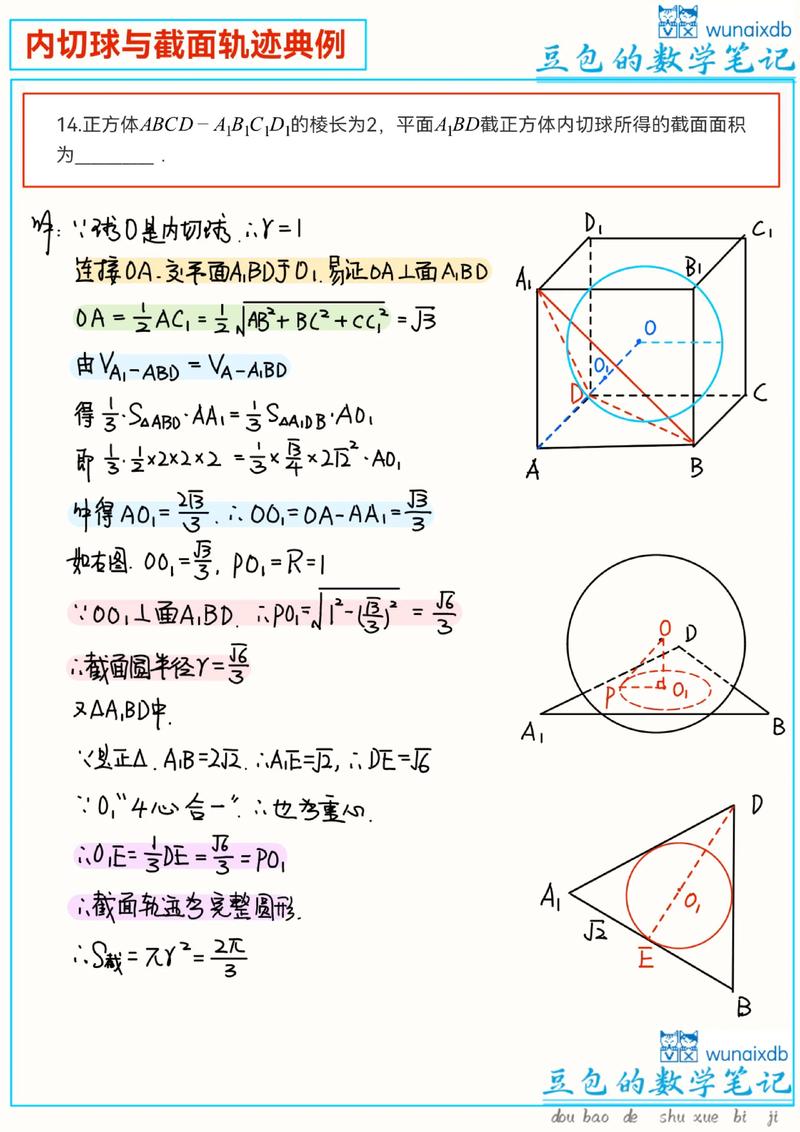 内切球与截面轨迹典例
wunaixdb
豆包的数学笔记
14.正方体ABCD－A₁B₁C₁D₁的棱长为2，平面A₁BD截正方体内切球所得的截面面积
为________．
解：∵球O是内切球.∴r=1
连接OA.交平面A₁BD于O₁.易证OA⊥面A₁BD
OA=1/2AC₁=1/2√(AB²+BC²+CC₁²)=√3
由V_{A₁-ABD}=V_{A-A₁BD}
得1/3·S△ABD·AA₁=1/3S△A₁DB·AO₁
即1/3·1/2×2×2×2=1/3×√3/4×2√2²·AO₁
解得AO₁=2√3/3.∴OO₁=OA-AA₁=√3/3
如右图.OO₁=√3/3,PO₁=R=1
∵OO₁⊥面A₁BD.∴PO₁=√(1²-(√3/3)²)=√6/3
∴截面圆半径r=√6/3
又△A₁BD中.
∵是正△.A₁B=2√2.∴A₁E=√2,∴DE=√6
∵O₁"4心合一".∴也为重心.
∴O₁E=1/3DE=√6/3=PO₁
∴截面轨迹为完整圆形.
∴S截=πr²=2π/3
D₁
C₁
A₁
B₁
O
O₁
D
C
A
B
O
D
P
O₁
A₁
B
D
A₁
O₁
√2
E
B
wunaixdb
豆包的数学笔记
dou bao de shu xue bi ji